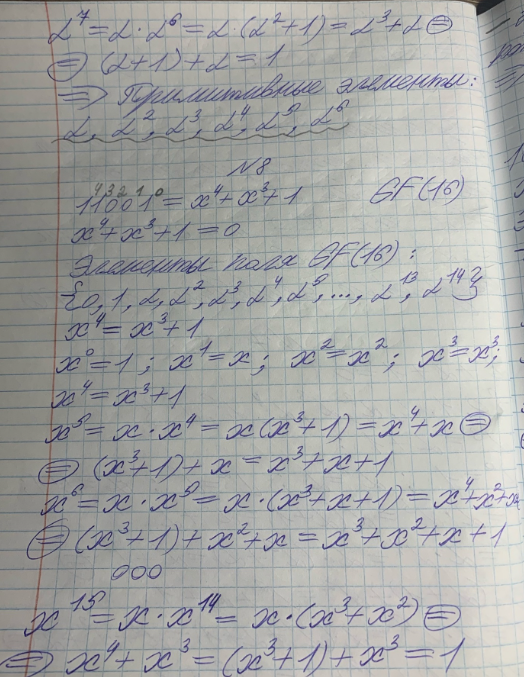 α⁷ = α · α⁶ = α · (α² + 1) = α³ + α ⊜
⊜ (α + 1) + α = 1
⇒ Примитивные элементы:
α, α², α³, α⁴, α⁵, α⁶
N8
4 3 2 1 0
11001 = x⁴ + x³ + 1 GF(16)
x⁴ + x³ + 1 = 0
Элементы поля GF(16):
{0, 1, α, α², α³, α⁴, α⁵, ..., α¹³, α¹⁴}
x⁴ = x³ + 1
x⁰ = 1; x¹ = x; x² = x²; x³ = x³;
x⁴ = x³ + 1
x⁵ = x · x⁴ = x(x³ + 1) = x⁴ + x ⊜
⊜ (x³ + 1) + x = x³ + x + 1
x⁶ = x · x⁵ = x · (x³ + x + 1) = x⁴ + x² + x
⊜ (x³ + 1) + x² + x = x³ + x² + x + 1
ooo
x¹⁵ = x · x¹⁴ = x · (x³ + x²) ⊜
⊜ x⁴ + x³ = (x³ + 1) + x³ = 1